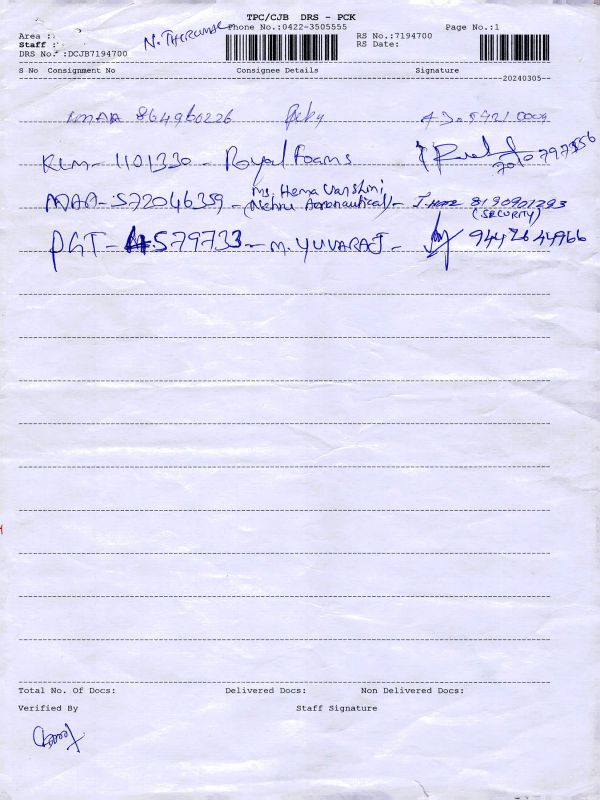 TPC/CJB DRS - PCK
Phone No.:0422-3505555
Page No.:1
Area :
Staff :
DRS No.:DCJB7194700
RS No.:7194700
RS Date:
S No Consignment No Consignee Details Signature
20240305
864960226
KLM- 1101330 - Royal Foams
MAA-572046359 - Ms. Hema Varshini, (Nehru Aeronautical) - 8190901293
(SECURITY)
PGT - 4579733 - M. YUVARAJ - 9442644966
Total No. Of Docs: Delivered Docs: Non Delivered Docs:
Verified By Staff Signature